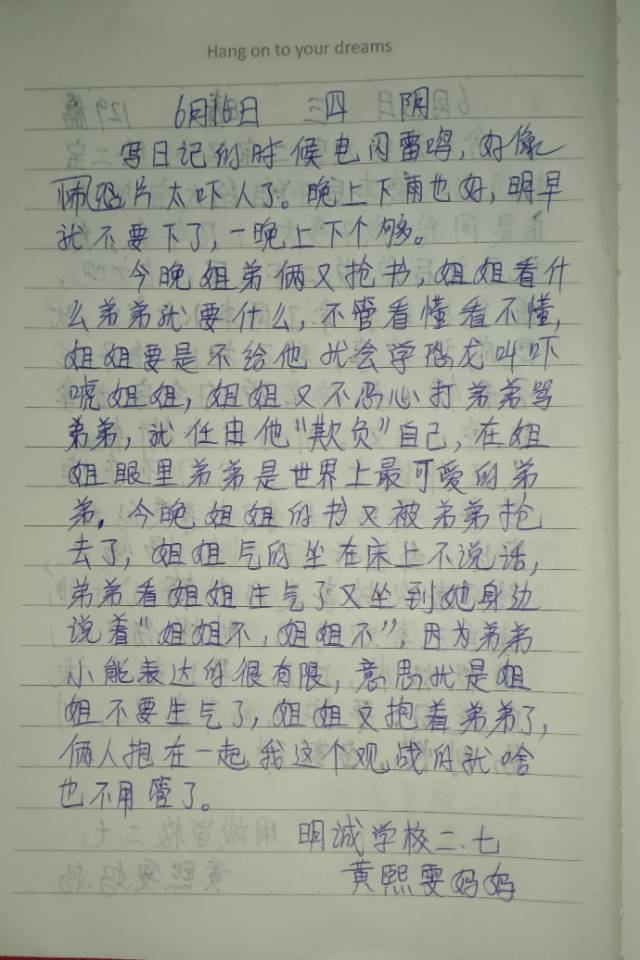 Hang on to your dreams
6月16日 三四 阴
写日记的时候电闪雷鸣，好像
恐片太吓人了。晚上下雨也好，明早
就不要下了，一晚上下个够。
今晚姐弟俩又抢书，姐姐看什
么弟弟就要什么，不管看懂看不懂，
姐姐要是不给他就会学恐龙叫吓
唬姐姐，姐姐又不忍心打弟弟骂
弟弟，就任由他“欺负”自己，在姐
姐眼里弟弟是世界上最可爱的弟
弟。今晚姐姐的书又被弟弟抢
去了，姐姐气的坐在床上不说话，
弟弟看姐姐生气了又坐到她身边
说着“姐姐不，姐姐不”，因为弟弟
小能表达的很有限，意思就是姐
姐不要生气了，姐姐又抱着弟弟了，
俩人抱在一起我这个观战的就啥
也不用管了。
明诚学校二.七
黄熙雯妈妈